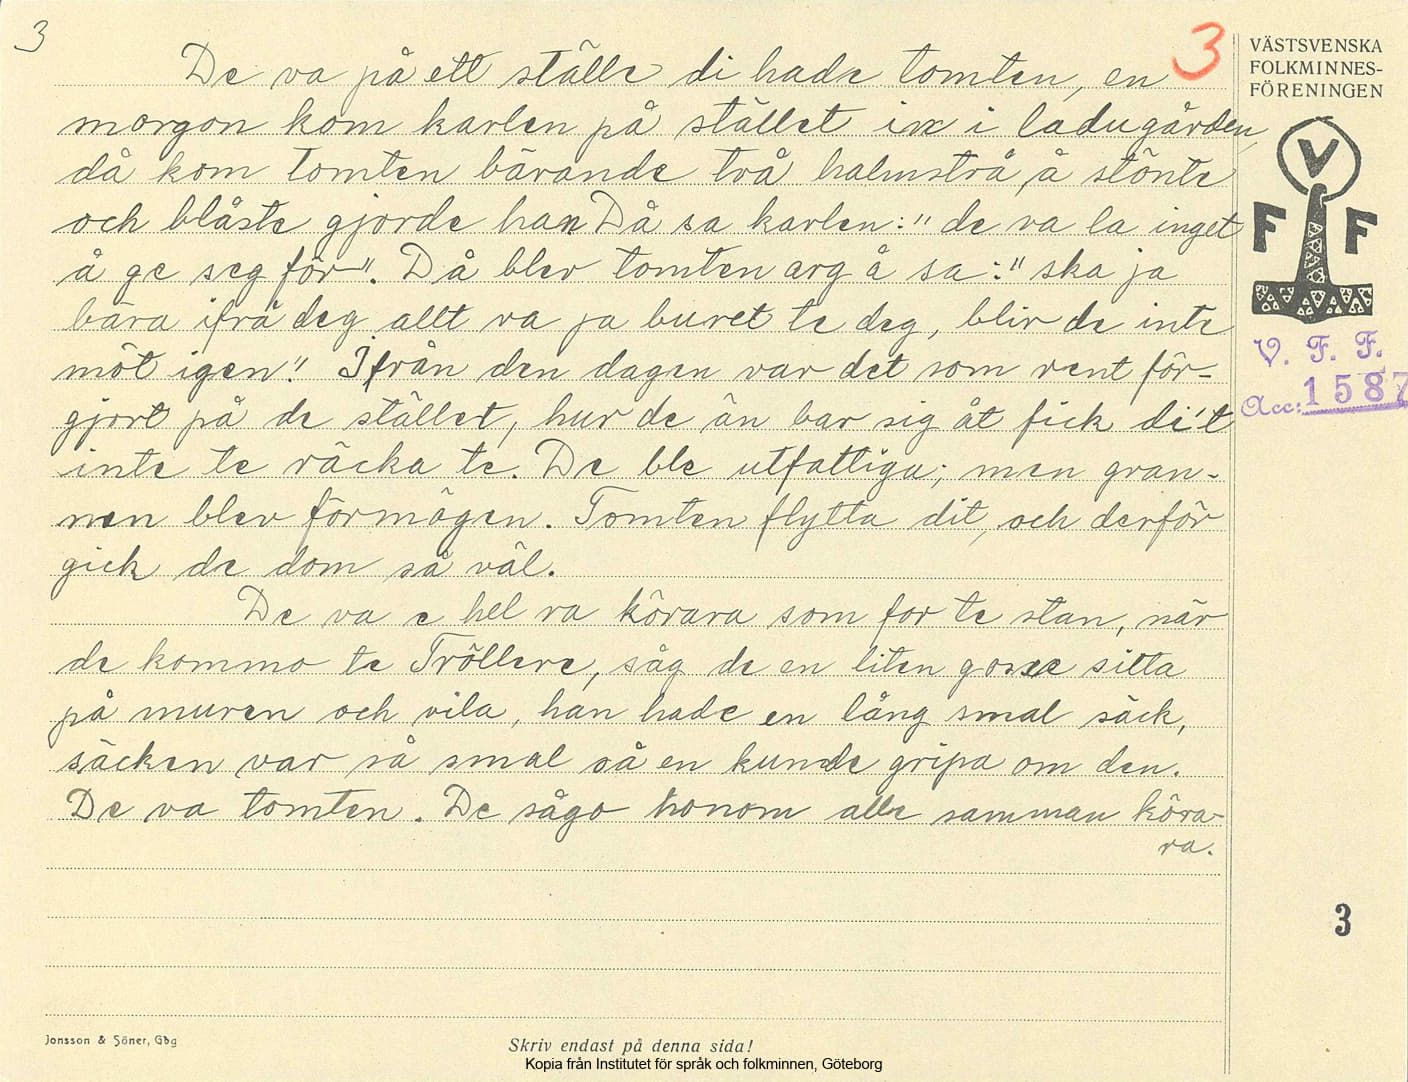 3
3
VÄSTSVENSKA
FOLKMINNES-
FÖRENINGEN
De va på ett ställe di hade tomten, en
morgon kom karlen på stället in i ladugården,
då kom tomten bärande två halmstrå, å stönte
och blåste gjorde han Då sa karlen: "de va la inget
å ge seg för". Då blev tomten arg å sa: "ska ja
bära ifrå deg allt va ja buret te deg, blir de inte
möt igen." Ifrån den dagen var det som rent för-
gjort på de stället, hur de än bar sig åt fick di't
inte te räcka te. De ble utfattiga; men gran-
nen blev förmögen. Tomten flytta dit, och derför
gick de dom så väl.
De va e hel ra körara som for te stan, när
de kommo te Tröllere, såg de en liten gosse sitta
på muren och vila, han hade en lång smal säck,
säcken var så smal så en kunde gripa om den.
De va tomten. De sågo honom alle samman köra-
ra.
V
F F
V. F. F.
Acc: 1587
3
Jonsson & Söner, Gbg
Skriv endast på denna sida!
Kopia från Institutet för språk och folkminnen, Göteborg